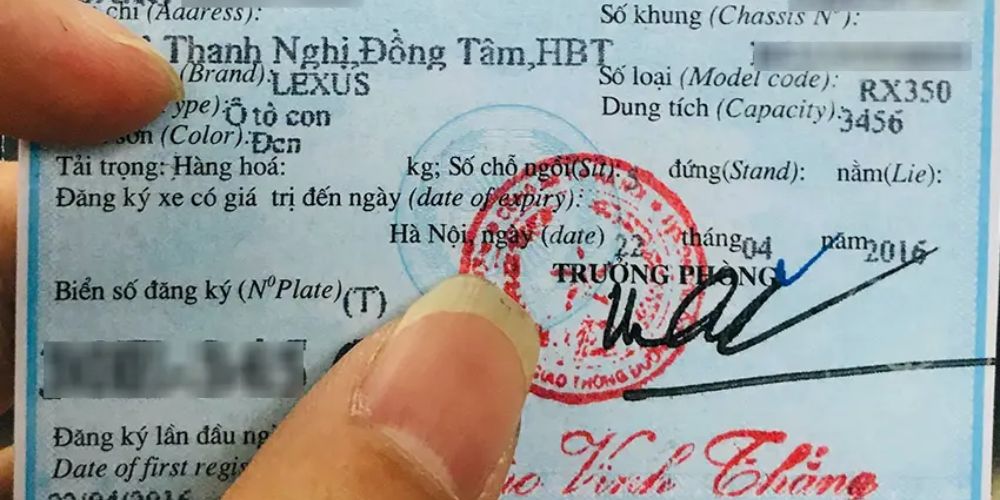 chỉ (Address):
Số khung (Chassis N°):
Thanh Nghị,Đồng Tâm,HBT
(Brand):LEXUS
Số loại (Model code): RX350
ype):Ô tô con
Dung tích (Capacity):3456
sơn (Color):Đen
Tải trọng: Hàng hoá: kg; Số chỗ ngồi(Sit): 5 đứng(Stand): nằm(Lie):
Đăng ký xe có giá trị đến ngày (date of expiry):
Hà Nội, ngày (date) 22 tháng 04 năm 2016
TRƯỞNG PHÒNG
Biển số đăng ký (N⁰Plate)(T)
GIAO THÔNG ĐƯỜ
Đăng ký lần đầu ng
Date of first regis
Vinh Thắng
22/04/2016